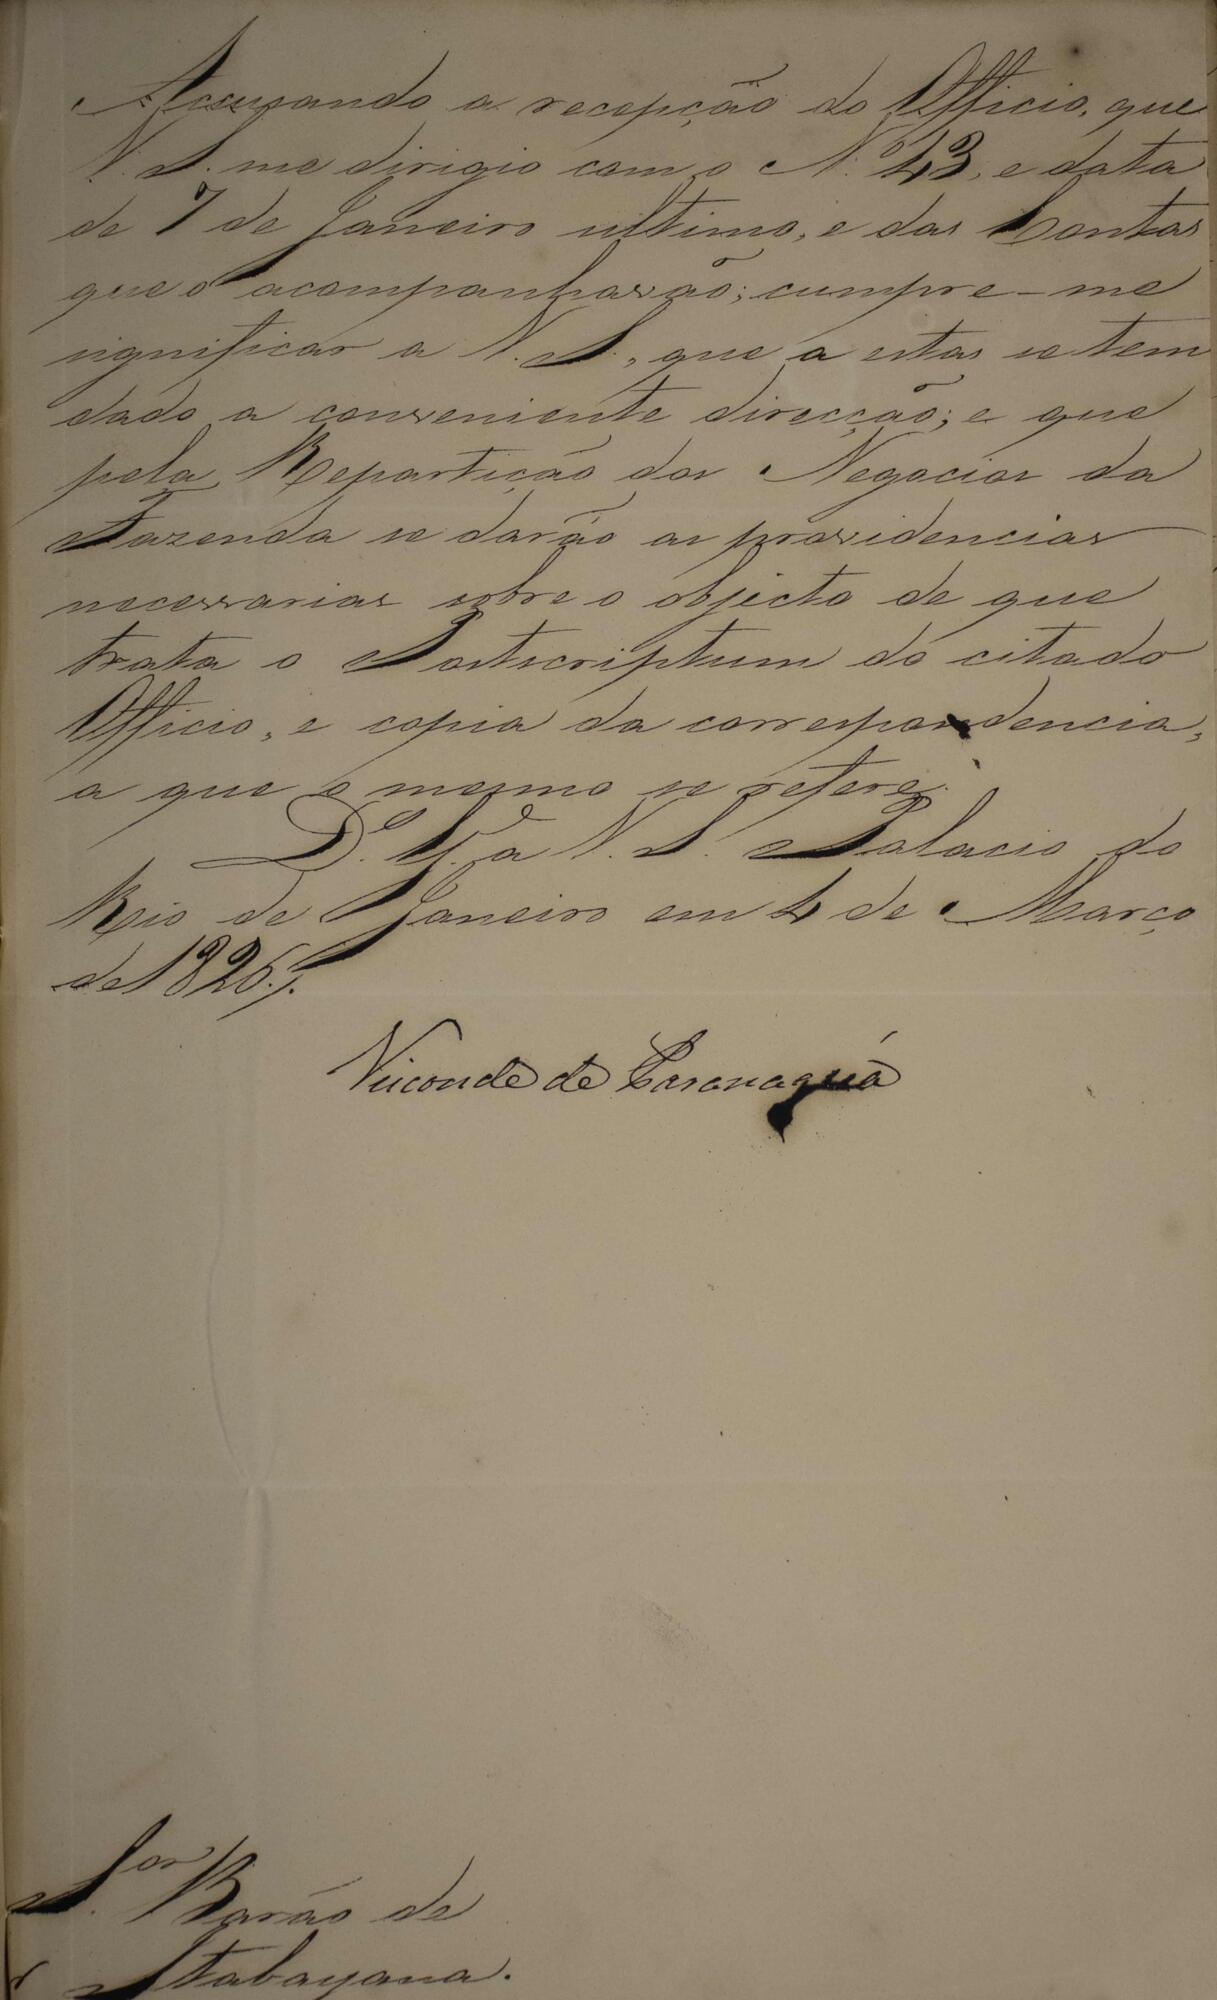 Accusando a recepção do Officio, que
V. S. me dirigio com o N.º 43, e data
de 7 de Janeiro ultimo, e das Contas
que o acompanharão; cumpre-me
significar a V. S., que a estas se tem
dado a conveniente direcção; e que
pela Repartição dos Negocios da
Fazenda se darão as providencias
necessarias sobre o objecto de que
trata o Postscriptum do citado
Officio, e copia da correspondencia,
a que o mesmo se refere.
D.s G.e a V. S. Palacio do
Rio de Janeiro em 4 de Março
de 1826.
Visconde de Paranaguá
S.or Barão de
Itabayana.